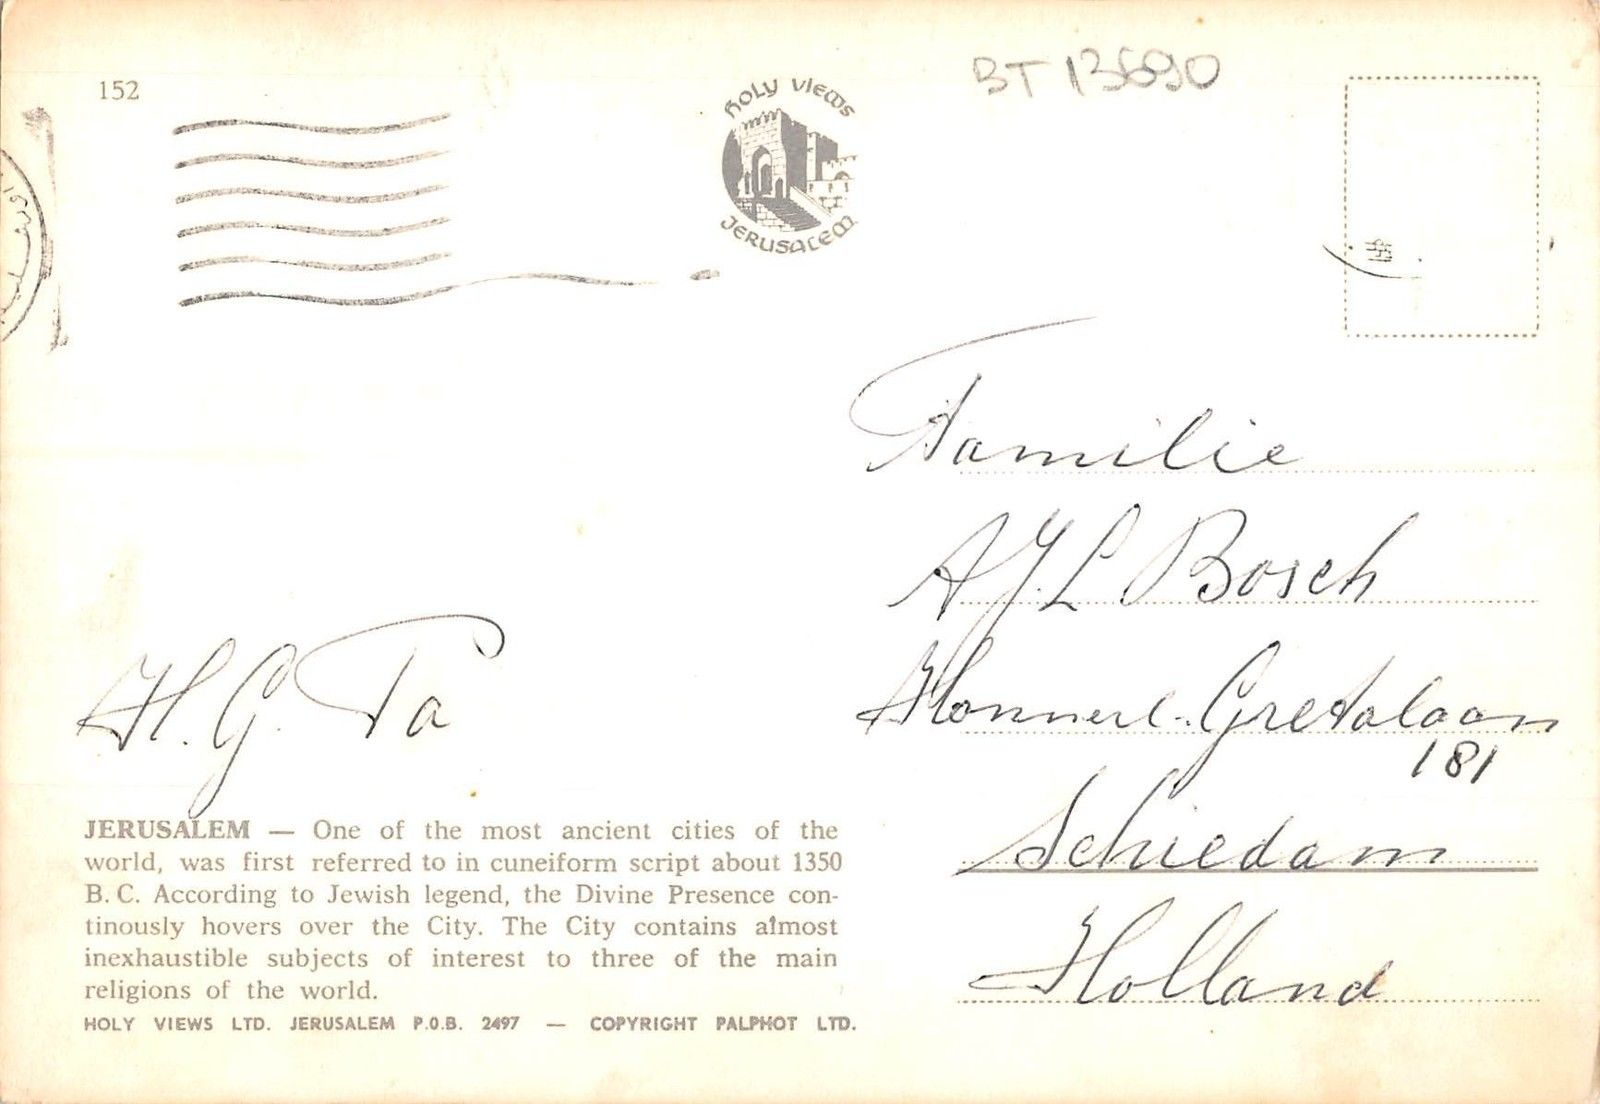 152
HOLY VIEWS
JERUSALEM
BT 13690
Familie
A J. L Bosch
Gretalaan
181
Schiedam
Holland
H. G. Ta
JERUSALEM — One of the most ancient cities of the
world, was first referred to in cuneiform script about 1350
B. C. According to Jewish legend, the Divine Presence con-
tinously hovers over the City. The City contains almost
inexhaustible subjects of interest to three of the main
religions of the world.
HOLY VIEWS LTD. JERUSALEM P.O.B. 2497 — COPYRIGHT PALPHOT LTD.